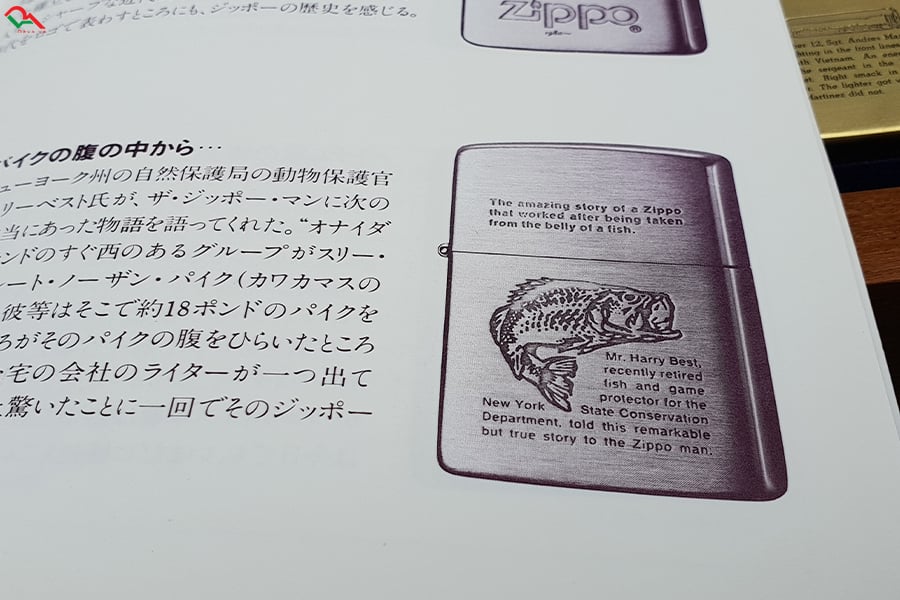 で表わすところにも、ジッポーの歴史を感じる。
Zippo®
バイクの腹の中から…
ューヨーク州の自然保護局の動物保護官
リーベスト氏が、ザ・ジッポー・マンに次の
当にあった物語を語ってくれた。“オナイダ
ンドのすぐ西のあるグループがスリー・
レート・ノーザン・パイク(カワカマスの
彼等はそこで約18ポンドのパイクを
ろがそのパイクの腹をひらいたところ
宅の会社のライターが一つ出て
驚いたことに一回でそのジッポー
The amazing story of a Zippo
that worked after being taken
from the belly of a fish.
Mr. Harry Best,
recently retired
fish and game
protector for the
New York State Conservation
Department, told this remarkable
but true story to the Zippo man.
12, Sgt. Andres
ting in the front lines
Vietnam. An
sergeant in the
Right smack in
The lighter got
Martines did not.